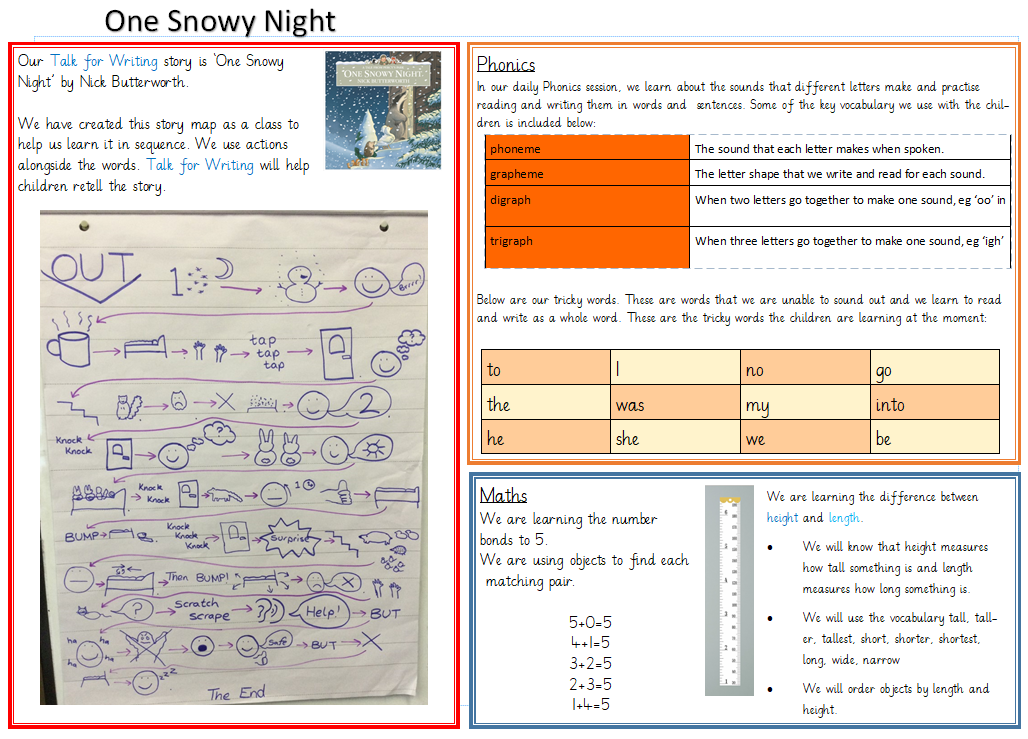 One Snowy Night
Our Talk for Writing story is 'One Snowy
Night' by Nick Butterworth.
ONE SNOWY NIGHT
NICK BUTTERWORTH
We have created this story map as a class to
help us learn it in sequence. We use actions
alongside the words. Talk for Writing will help
children retell the story.
OUT
1
Brrrr!
tap
tap
tap
2
Knock
Knock
?
Knock
Knock
1
BUMP
Knock
Knock
Knock
Surprise
Then BUMP!
?
Scratch
scrape
Help!
BUT
ha
ha
ha
ha
Safe
BUT
zzz
The End
Phonics
In our daily Phonics session, we learn about the sounds that different letters make and practise
reading and writing them in words and sentences. Some of the key vocabulary we use with the chil-
dren is included below:
phoneme The sound that each letter makes when spoken.
grapheme The letter shape that we write and read for each sound.
digraph When two letters go together to make one sound, eg 'oo' in
trigraph When three letters go together to make one sound, eg 'igh'
Below are our tricky words. These are words that we are unable to sound out and we learn to read
and write as a whole word. These are the tricky words the children are learning at the moment:
to I no go
the was my into
he she we be
Maths
We are learning the number
bonds to 5.
We are using objects to find each
matching pair.
5+0=5
4+1=5
3+2=5
2+3=5
1+4=5
We are learning the difference between
height and length.
• We will know that height measures
how tall something is and length
measures how long something is.
• We will use the vocabulary tall, tall-
er, tallest, short, shorter, shortest,
long, wide, narrow
• We will order objects by length and
height.